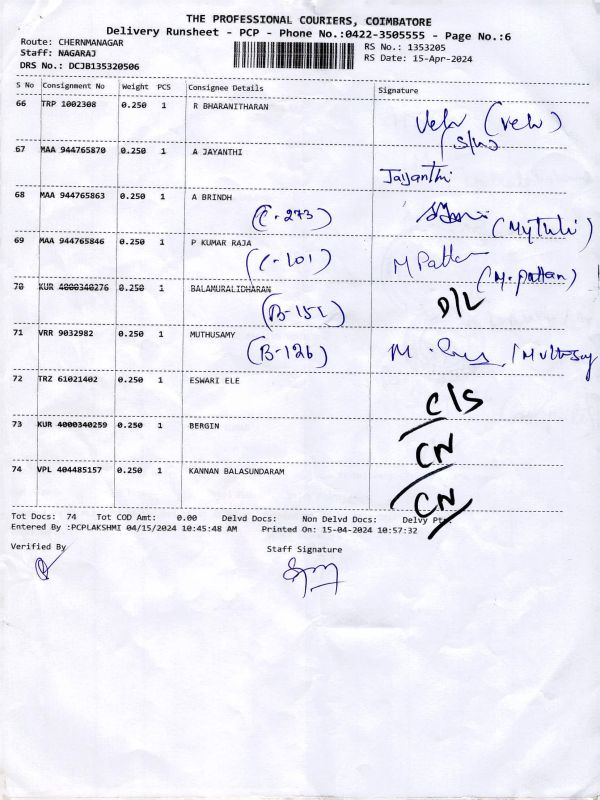 THE PROFESSIONAL COURIERS, COIMBATORE
Delivery Runsheet - PCP - Phone No.:0422-3505555 - Page No.:6
Route: CHERNMANAGAR
RS No.: 1353205
Staff: NAGARAJ
RS Date: 15-Apr-2024
DRS No.: DCJB135320506
S No Consignment No Weight PCS Consignee Details Signature
66 TRP 1002308 0.250 1 R BHARANITHARAN
67 MAA 944765870 0.250 1 A JAYANTHI
Jayanthi
68 MAA 944765863 0.250 1 A BRINDH
(C-273)
69 MAA 944765846 0.250 1 P KUMAR RAJA
(C-101) M Pattan
(M. pattan)
70 KUR 4000340276 0.250 1 BALAMURALIDHARAN
D/L
71 VRR 9032982 0.250 1 MUTHUSAMY
(B-126)
72 TRZ 61021402 0.250 1 ESWARI ELE
C/S
73 KUR 4000340259 0.250 1 BERGIN
CN
74 VPL 404485157 0.250 1 KANNAN BALASUNDARAM
CN
Tot Docs: 74 Tot COD Amt: 0.00 Delvd Docs: Non Delvd Docs: Delvy
Entered By :PCPLAKSHMI 04/15/2024 10:45:48 AM Printed On: 15-04-2024 10:57:32
Verified By Staff Signature